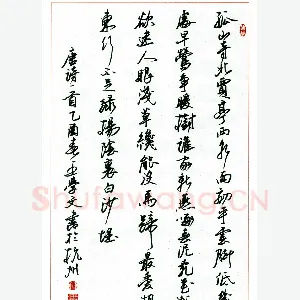 孤山寺北賈亭西水面初平雲脚低幾
處早鶯爭暖樹誰家新燕啄春泥亂花漸
欲迷人眼淺草纔能沒馬蹄最愛湖
東行不足綠楊陰裏白沙堤
唐詩一首乙酉春王學文書於杭州
Shufawang.CN